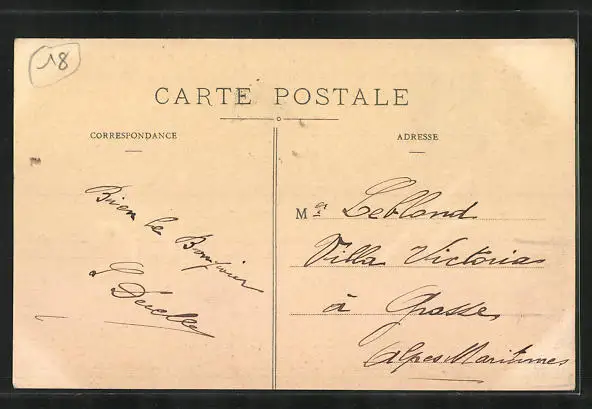 18
CARTE POSTALE
CORRESPONDANCE
Bien le Bonjour
ADRESSE
Mr Leblond
Villa Victoria
à Grasse
Alpes Maritimes